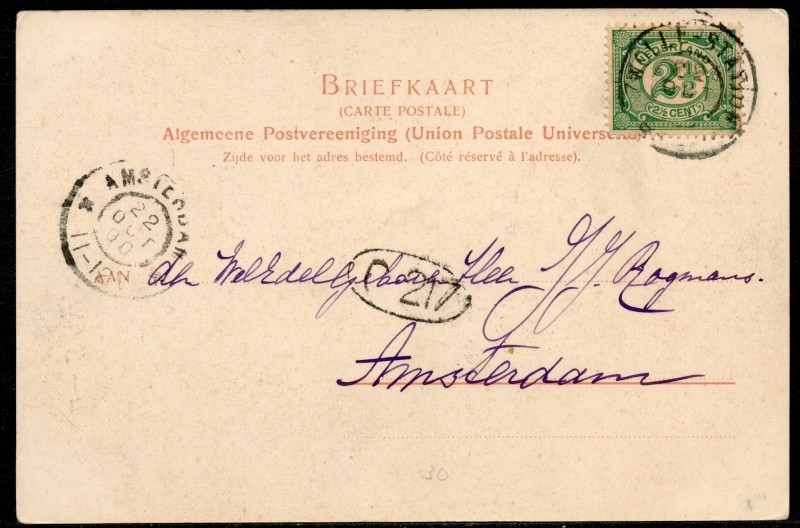 BRIEFKAART
(CARTE POSTALE)
Algemeene Postvereeniging (Union Postale Universelle)
Zijde voor het adres bestemd. (Côté réservé à l'adresse).
NEDERLAND
2½
2½ CENT
STATION
AMSTERDAM
22
OCT
00
11-12
AAN den WelEdelGeboren Heer J.J. Rogmans.
C 217
Amsterdam
30